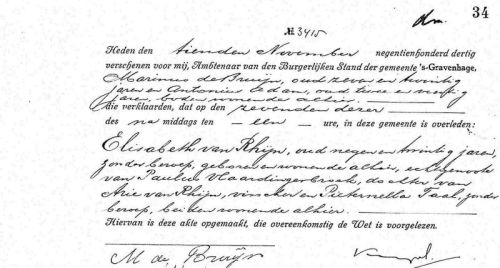 34
dm.
№ 3415
Heden den tienden November negentienhonderd dertig
verschenen voor mij, Ambtenaar van den Burgerlijken Stand der gemeente 's-Gravenhage,
Marinus de Bruijn, oud zeven en twintig
jaren en Antonius Dedan, oud twee en veertig
jaren, beiden wonende alhier.
die verklaarden, dat op den zevenden dezer
des na middags ten een ure, in deze gemeente is overleden:
Elisabeth van Rhijn, oud negen en twintig jaren,
zonder beroep, geboren en wonende alhier, echtgenoote
van Paulus Vlaardingerbroek, dochter van
Arie van Rhijn, visscher en Pieternella Taal, zonder
beroep, beiden wonende alhier.
Hiervan is deze akte opgemaakt, die overeenkomstig de Wet is voorgelezen.
M de Bruijn